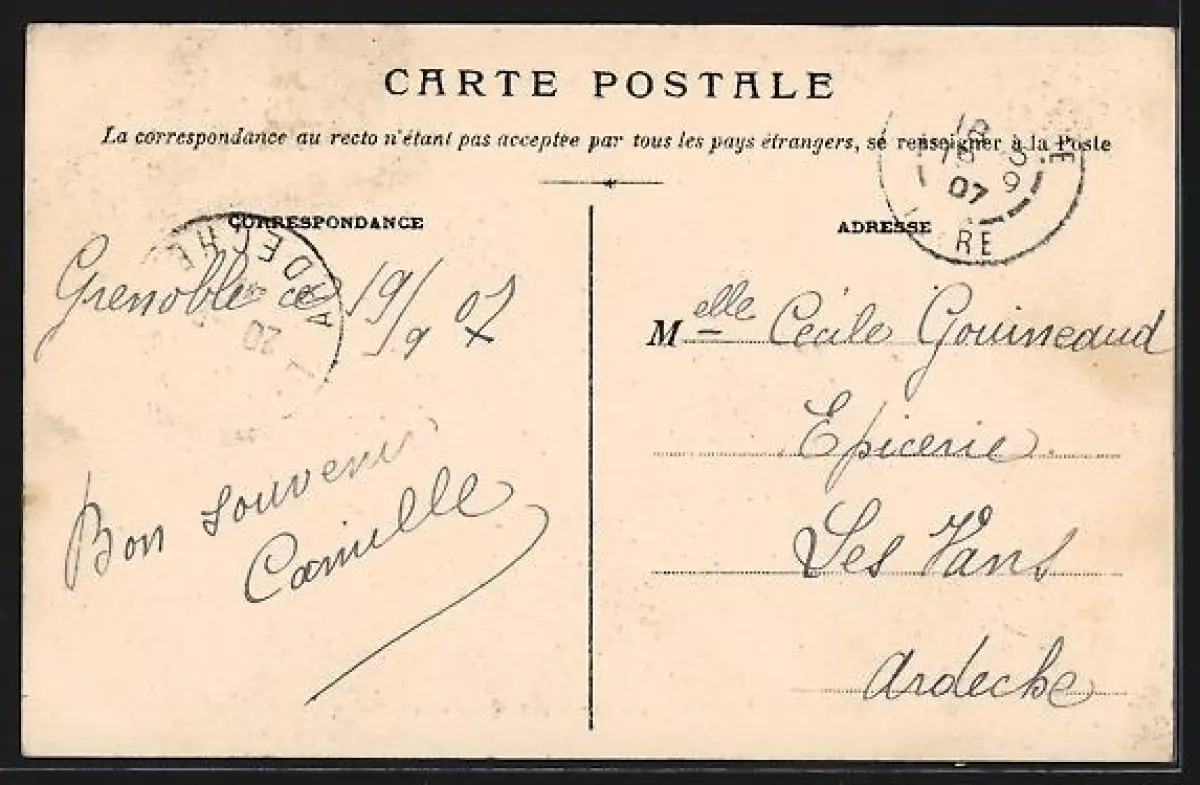 CARTE POSTALE
La correspondance au recto n'étant pas acceptée par tous les pays étrangers, se renseigner à la Poste
CORRESPONDANCE
ARDECHE
20
Grenoble ce 19/9 07
Bon souvenir
Camille
ADRESSE
07
9
Melle Cécile Gouineaud
Epicerie
Les Vans
Ardeche